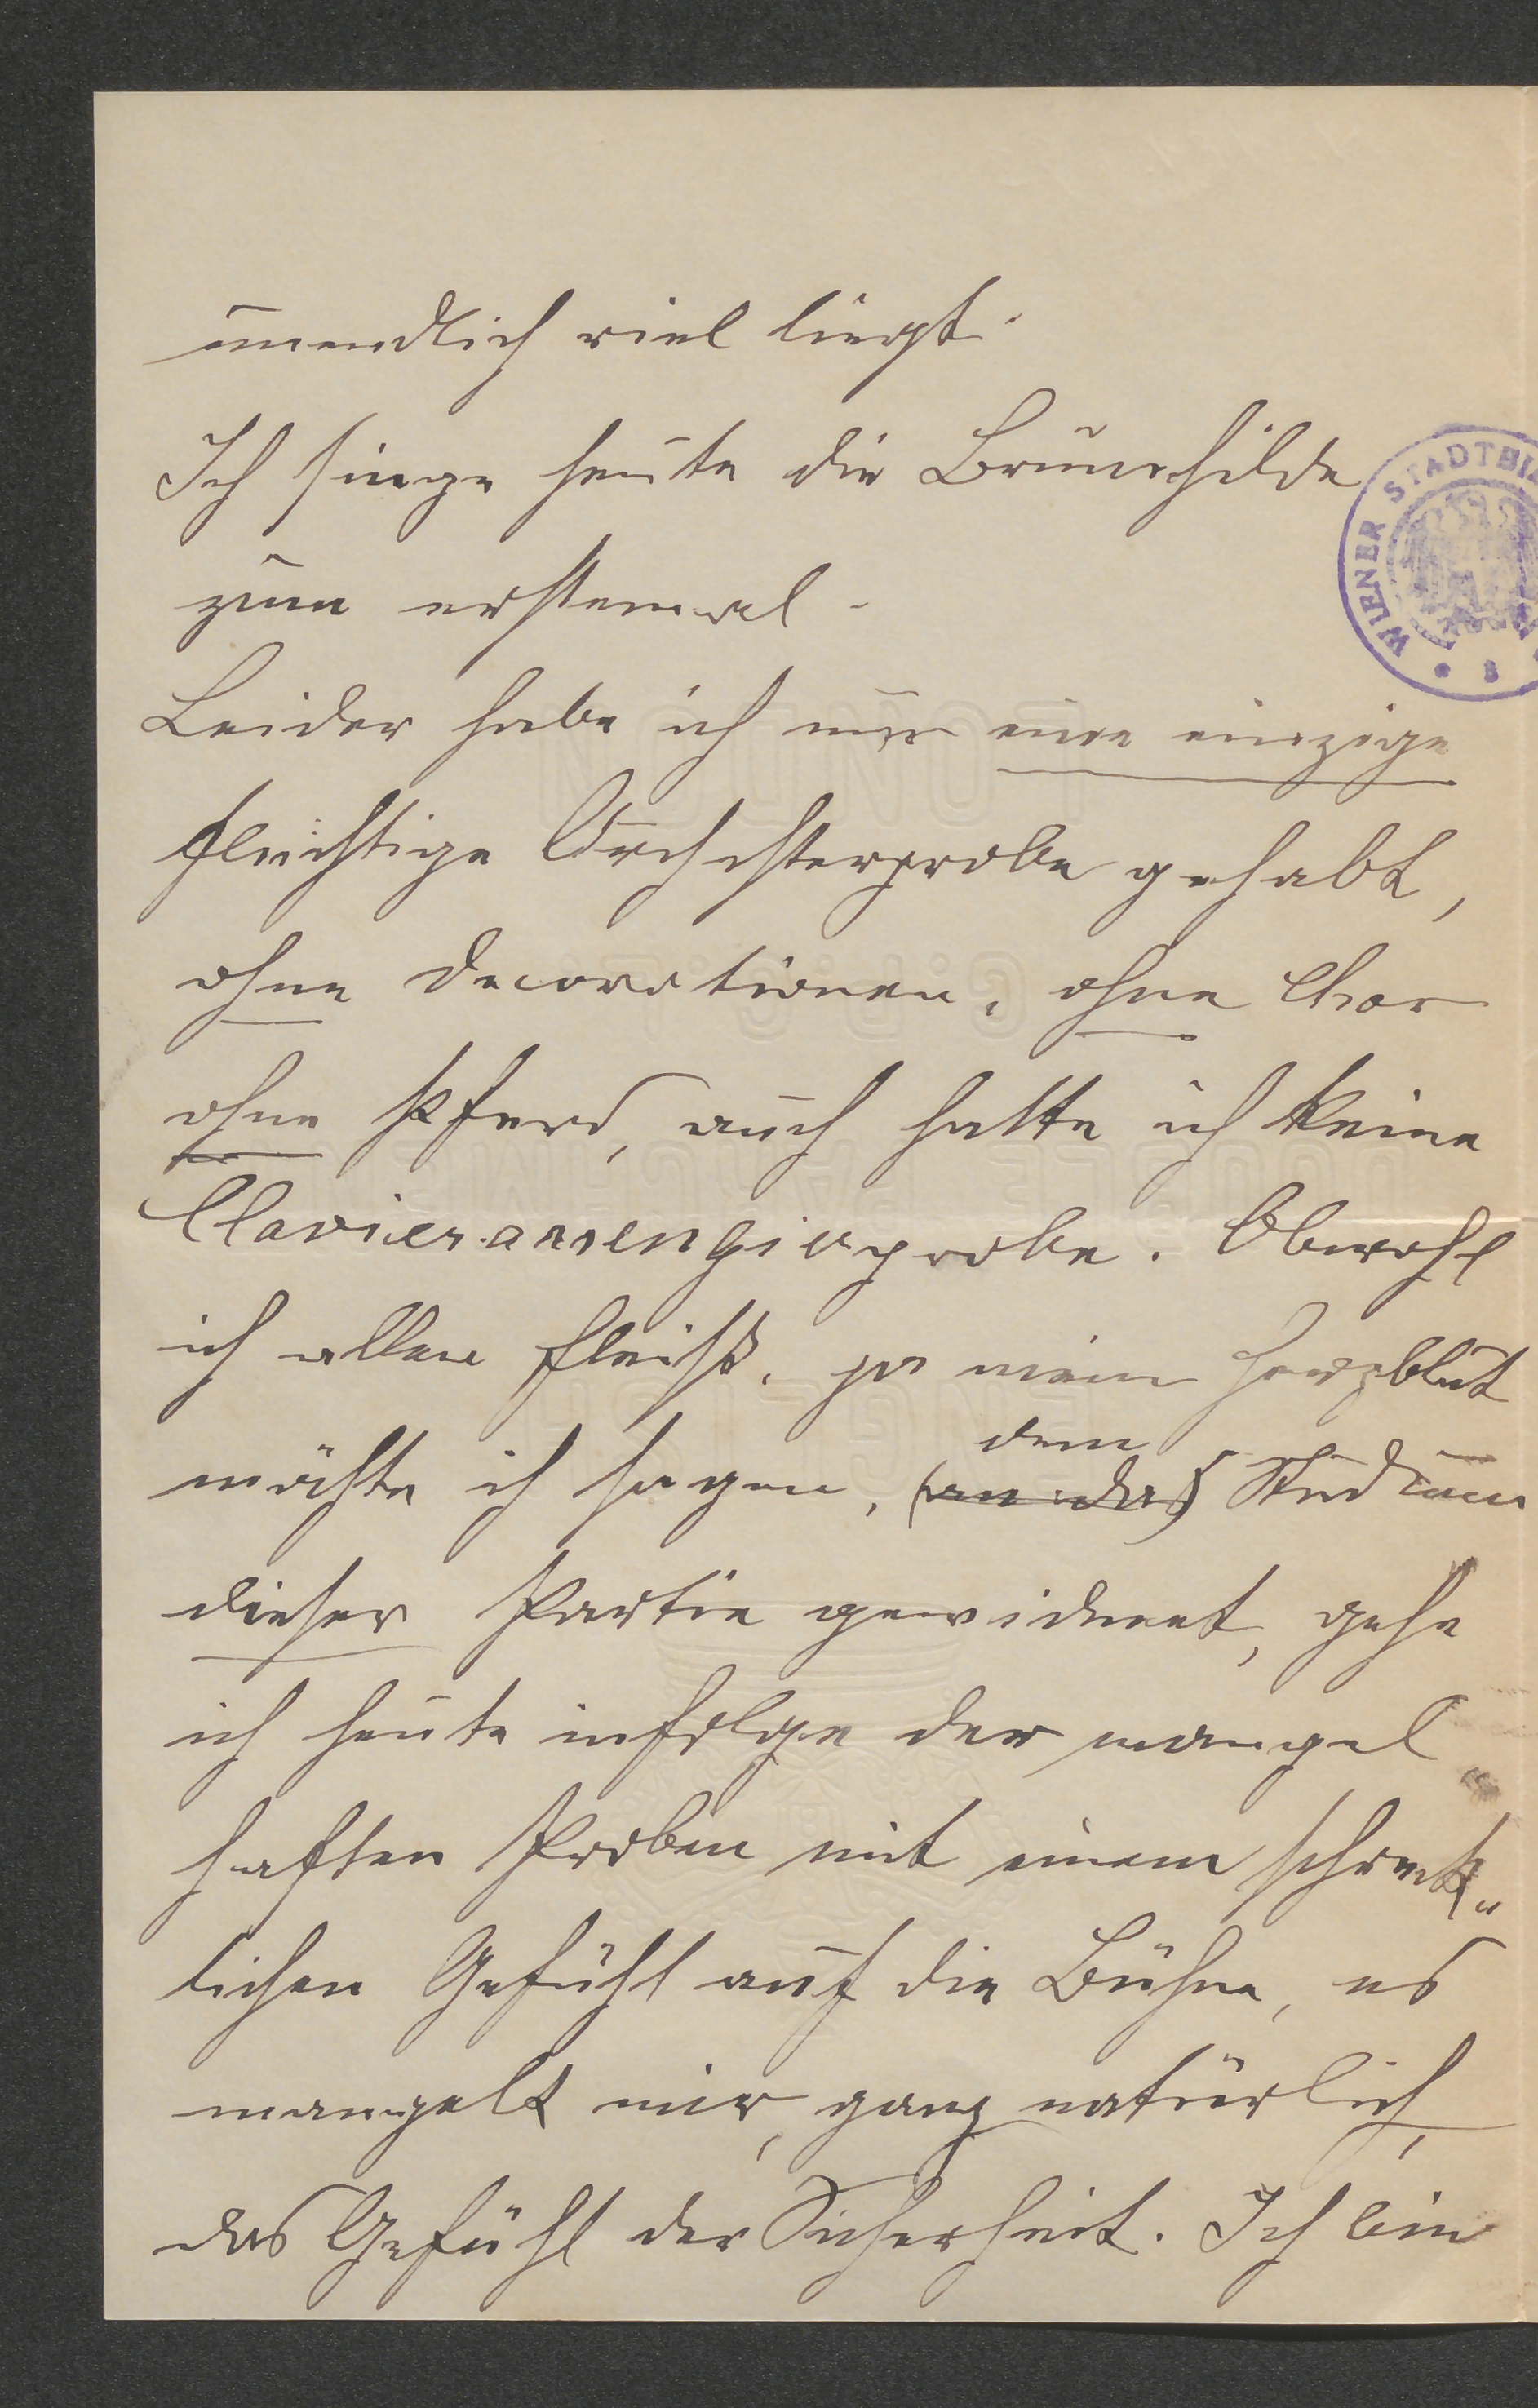 unendlich viel liegt.
Ich singe heute die Brünnhilde
zum erstenmal.
Leider habe ich nur eine einzige
flüchtige Orchesterprobe gehabt,
ohne Decorationen, ohne Chor
ohne Pferd, auch hatte ich keine
Clavierarrengirprobe. Obwohl
ich allen Fleiß, ja mein Herzblut
dem
möchte ich sagen, (an das) Studium
dieser Partie gewidmet, gehe
ich heute infolge der mangel
haften Proben mit einem schreck„
lichen Gefühl auf die Bühne, es
mangelt mir, ganz natürlich,
das Gefühl der Sicherheit. Ich bin
WIENER STADTBI